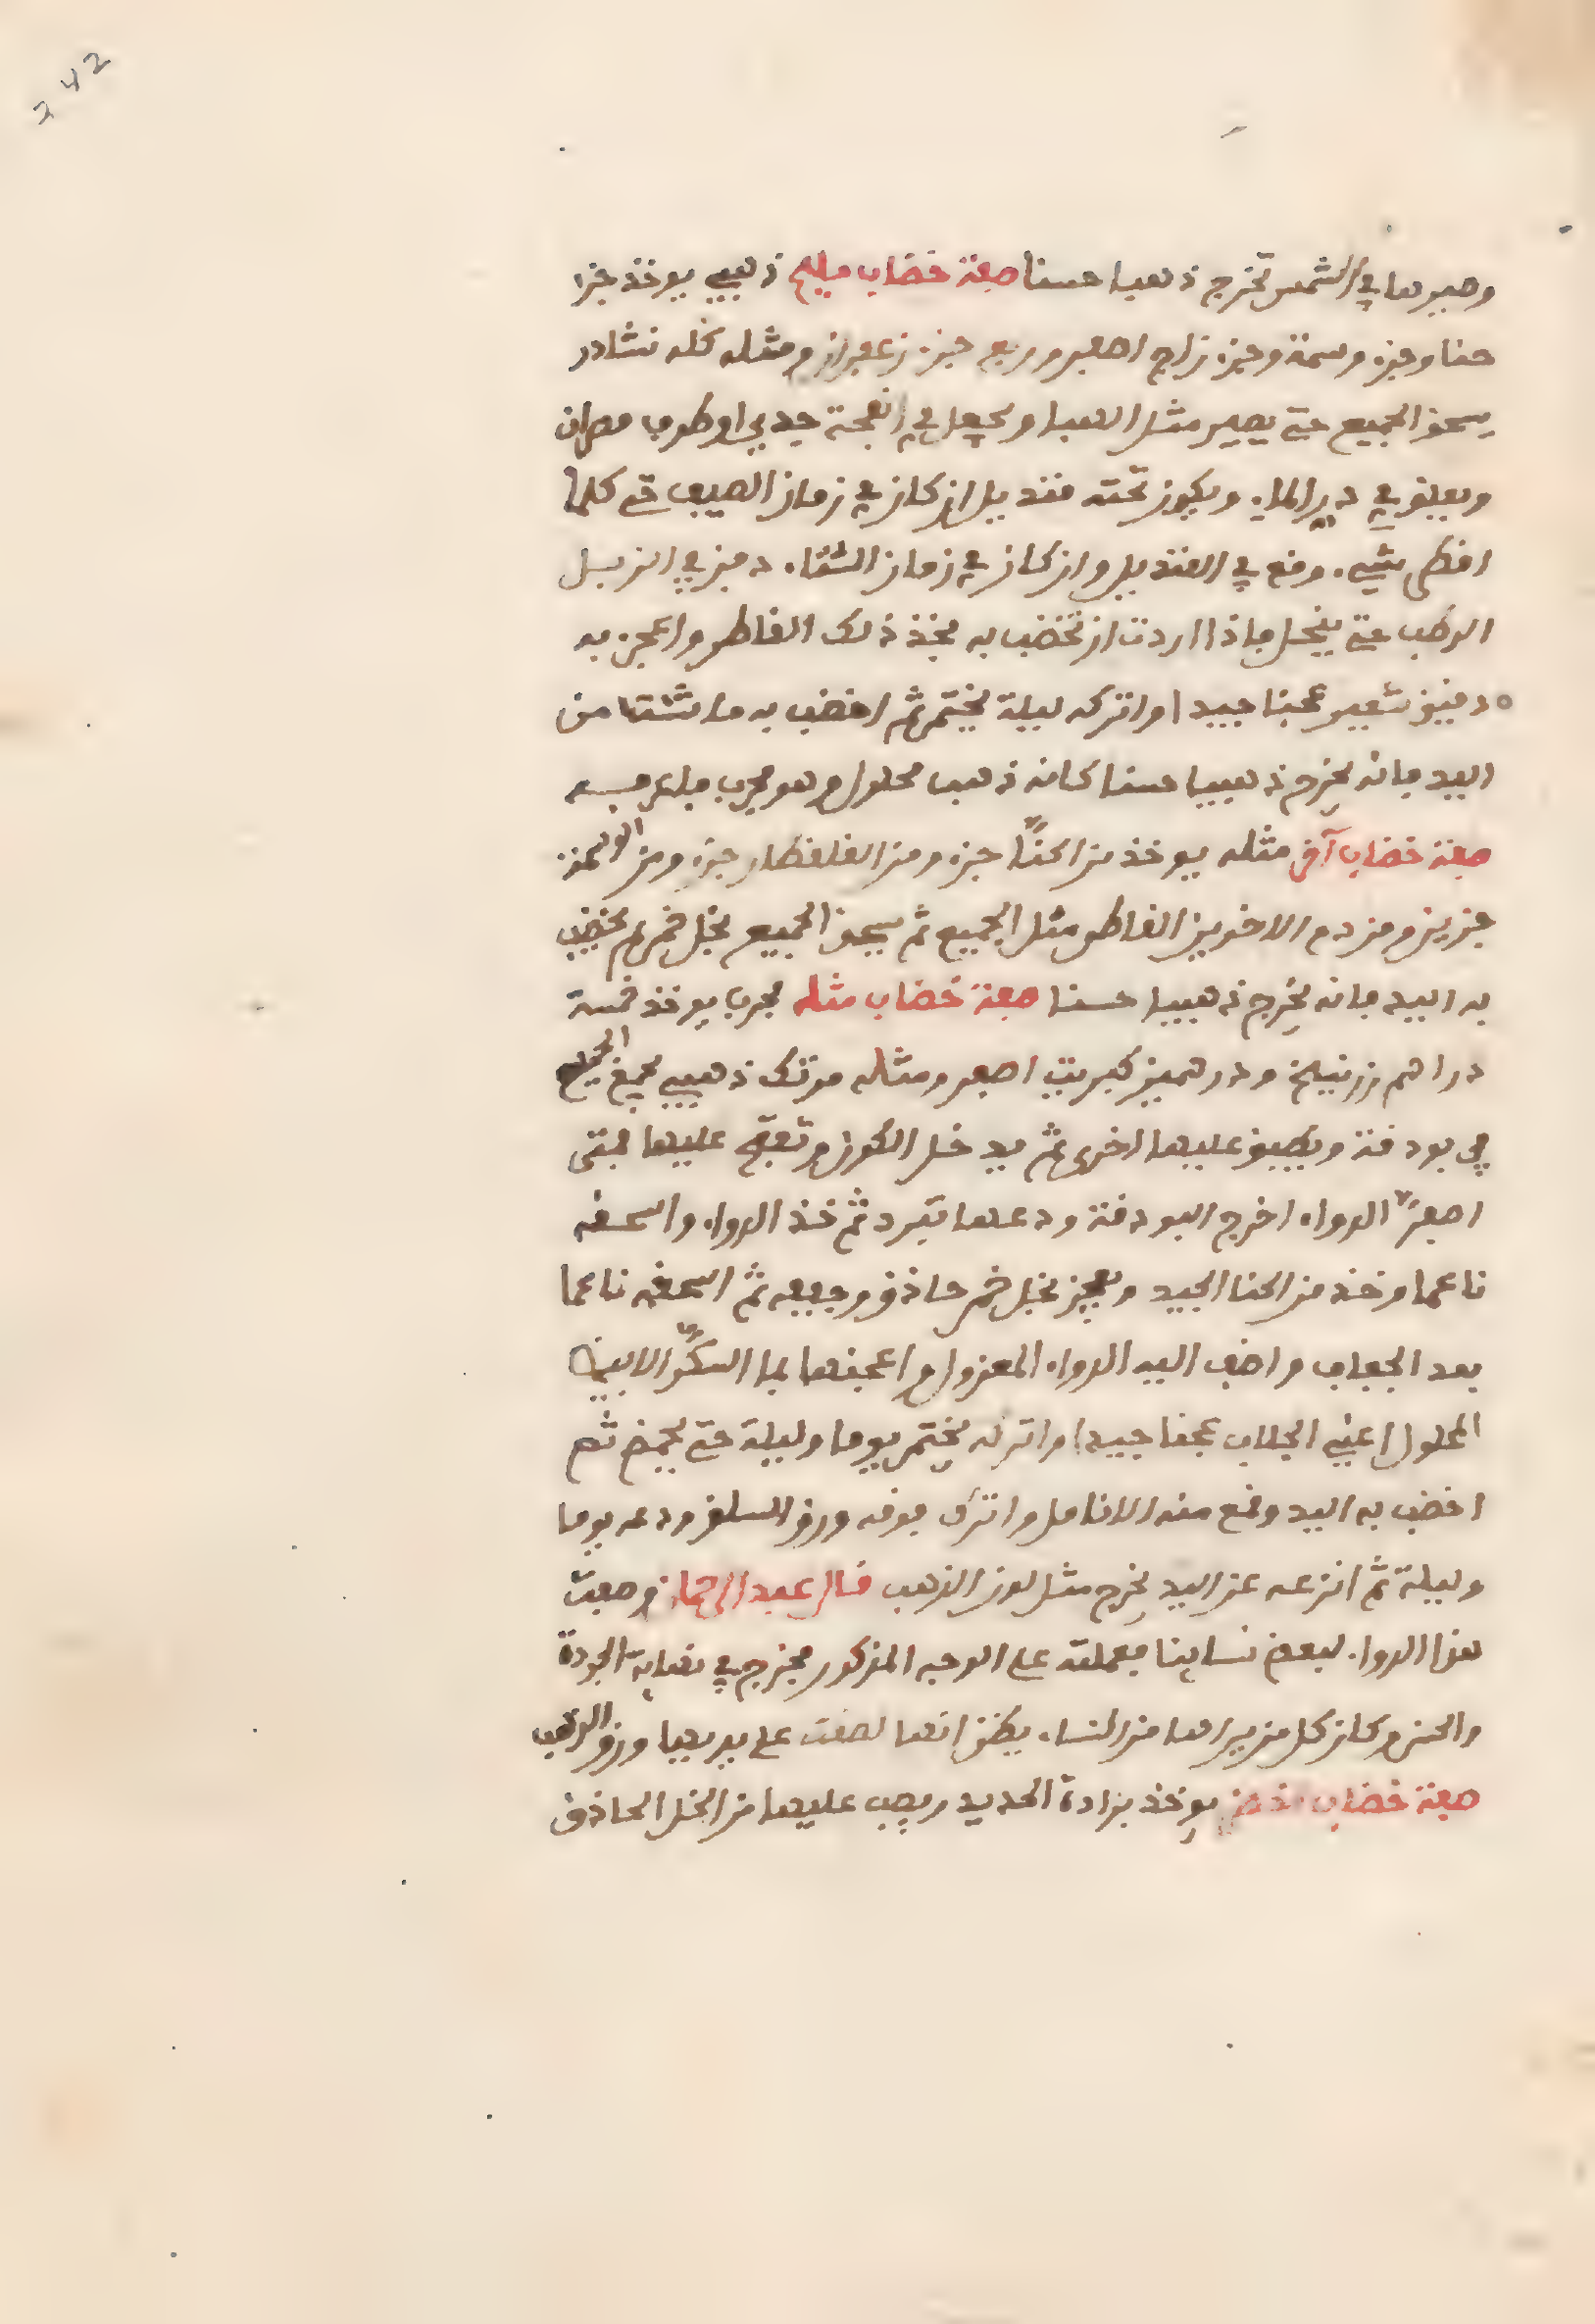 242
وصيرها في الشمس تخرج ذهبا حسنا صفة خضاب مليح ذهبي يوخذ جزا
حنا وجزء وسمة وجزء زاج اصفر وربع جزء زعفران ومثله كله نشادر
يسحق الجميع حتى يصير مثل الهبا ويجعل في انفحة جدي او طرف مصران
ويعلق في دير الماء ويكون تحته قنديل ان كان في زمان الصيف حتى كلما
اقطر شيء وقع في القنديل وان كان في زمان الشتاء دفن في الزبل
الرطب حتى ينحل فاذا اردت ان تخضب به فخذ ذلك القاطر واعجن به
دقيق شعير عجنا جيدا واتركه ليلة يختمر ثم اخضب به ما شئت من
اليد فانه يخرج ذهبيا حسنا كانه ذهب محلول وهو مجرب فاعرفه
صفة خضاب آخر مثله يوخذ من الحنا جزء ومن القلقطار جزء ومن الوسمة
جزءين ومن دم الاخوين القاطر مثل الجميع ثم يسحق الجميع بخل خمر ثم يخضب
به اليد فانه يخرج ذهبيا حسنا صفة خضاب مثله مجرب يوخذ خمسة
دراهم زرنيخ ودرهمين كبريت اصفر ومثله مرتك ذهبي يجمع الجميع
في بودقة ويطبق عليها اخرى ثم يدخل الكور وتنفخ عليها فمتى
اصفر الدواء اخرج البودقة ودعها تبرد ثم خذ الدواء واسحقه
ناعما وخذ من الحنا الجيد ويعجن بخل خمر حاذق وجففه ثم اسحقه ناعما
بعد الجفاف واضف اليه الدواء المعزول واعجنها بما السكر الابيض
المحلول اعني الجلاب عجنا جيدا واتركه يختمر يوما وليلة حتى يحمض ثم
اخضب به اليد وقمع منه الانامل واترك فوقه ورق السلق ودعه يوما
وليلة ثم انزعه عن اليد يخرج مثل لون الذهب قال عبد الرحمان وصفت
هذا الدواء لبعض نساينا فعملته على الوجه المذكور فخرج في نهاية الجودة
والحسن وكان كل من يراها من النساء يظن انها لصقت على يديها ورق الذهب
صفة خضاب اخضر يوخذ برادة الحديد ويصب عليها من الخل الحاذق